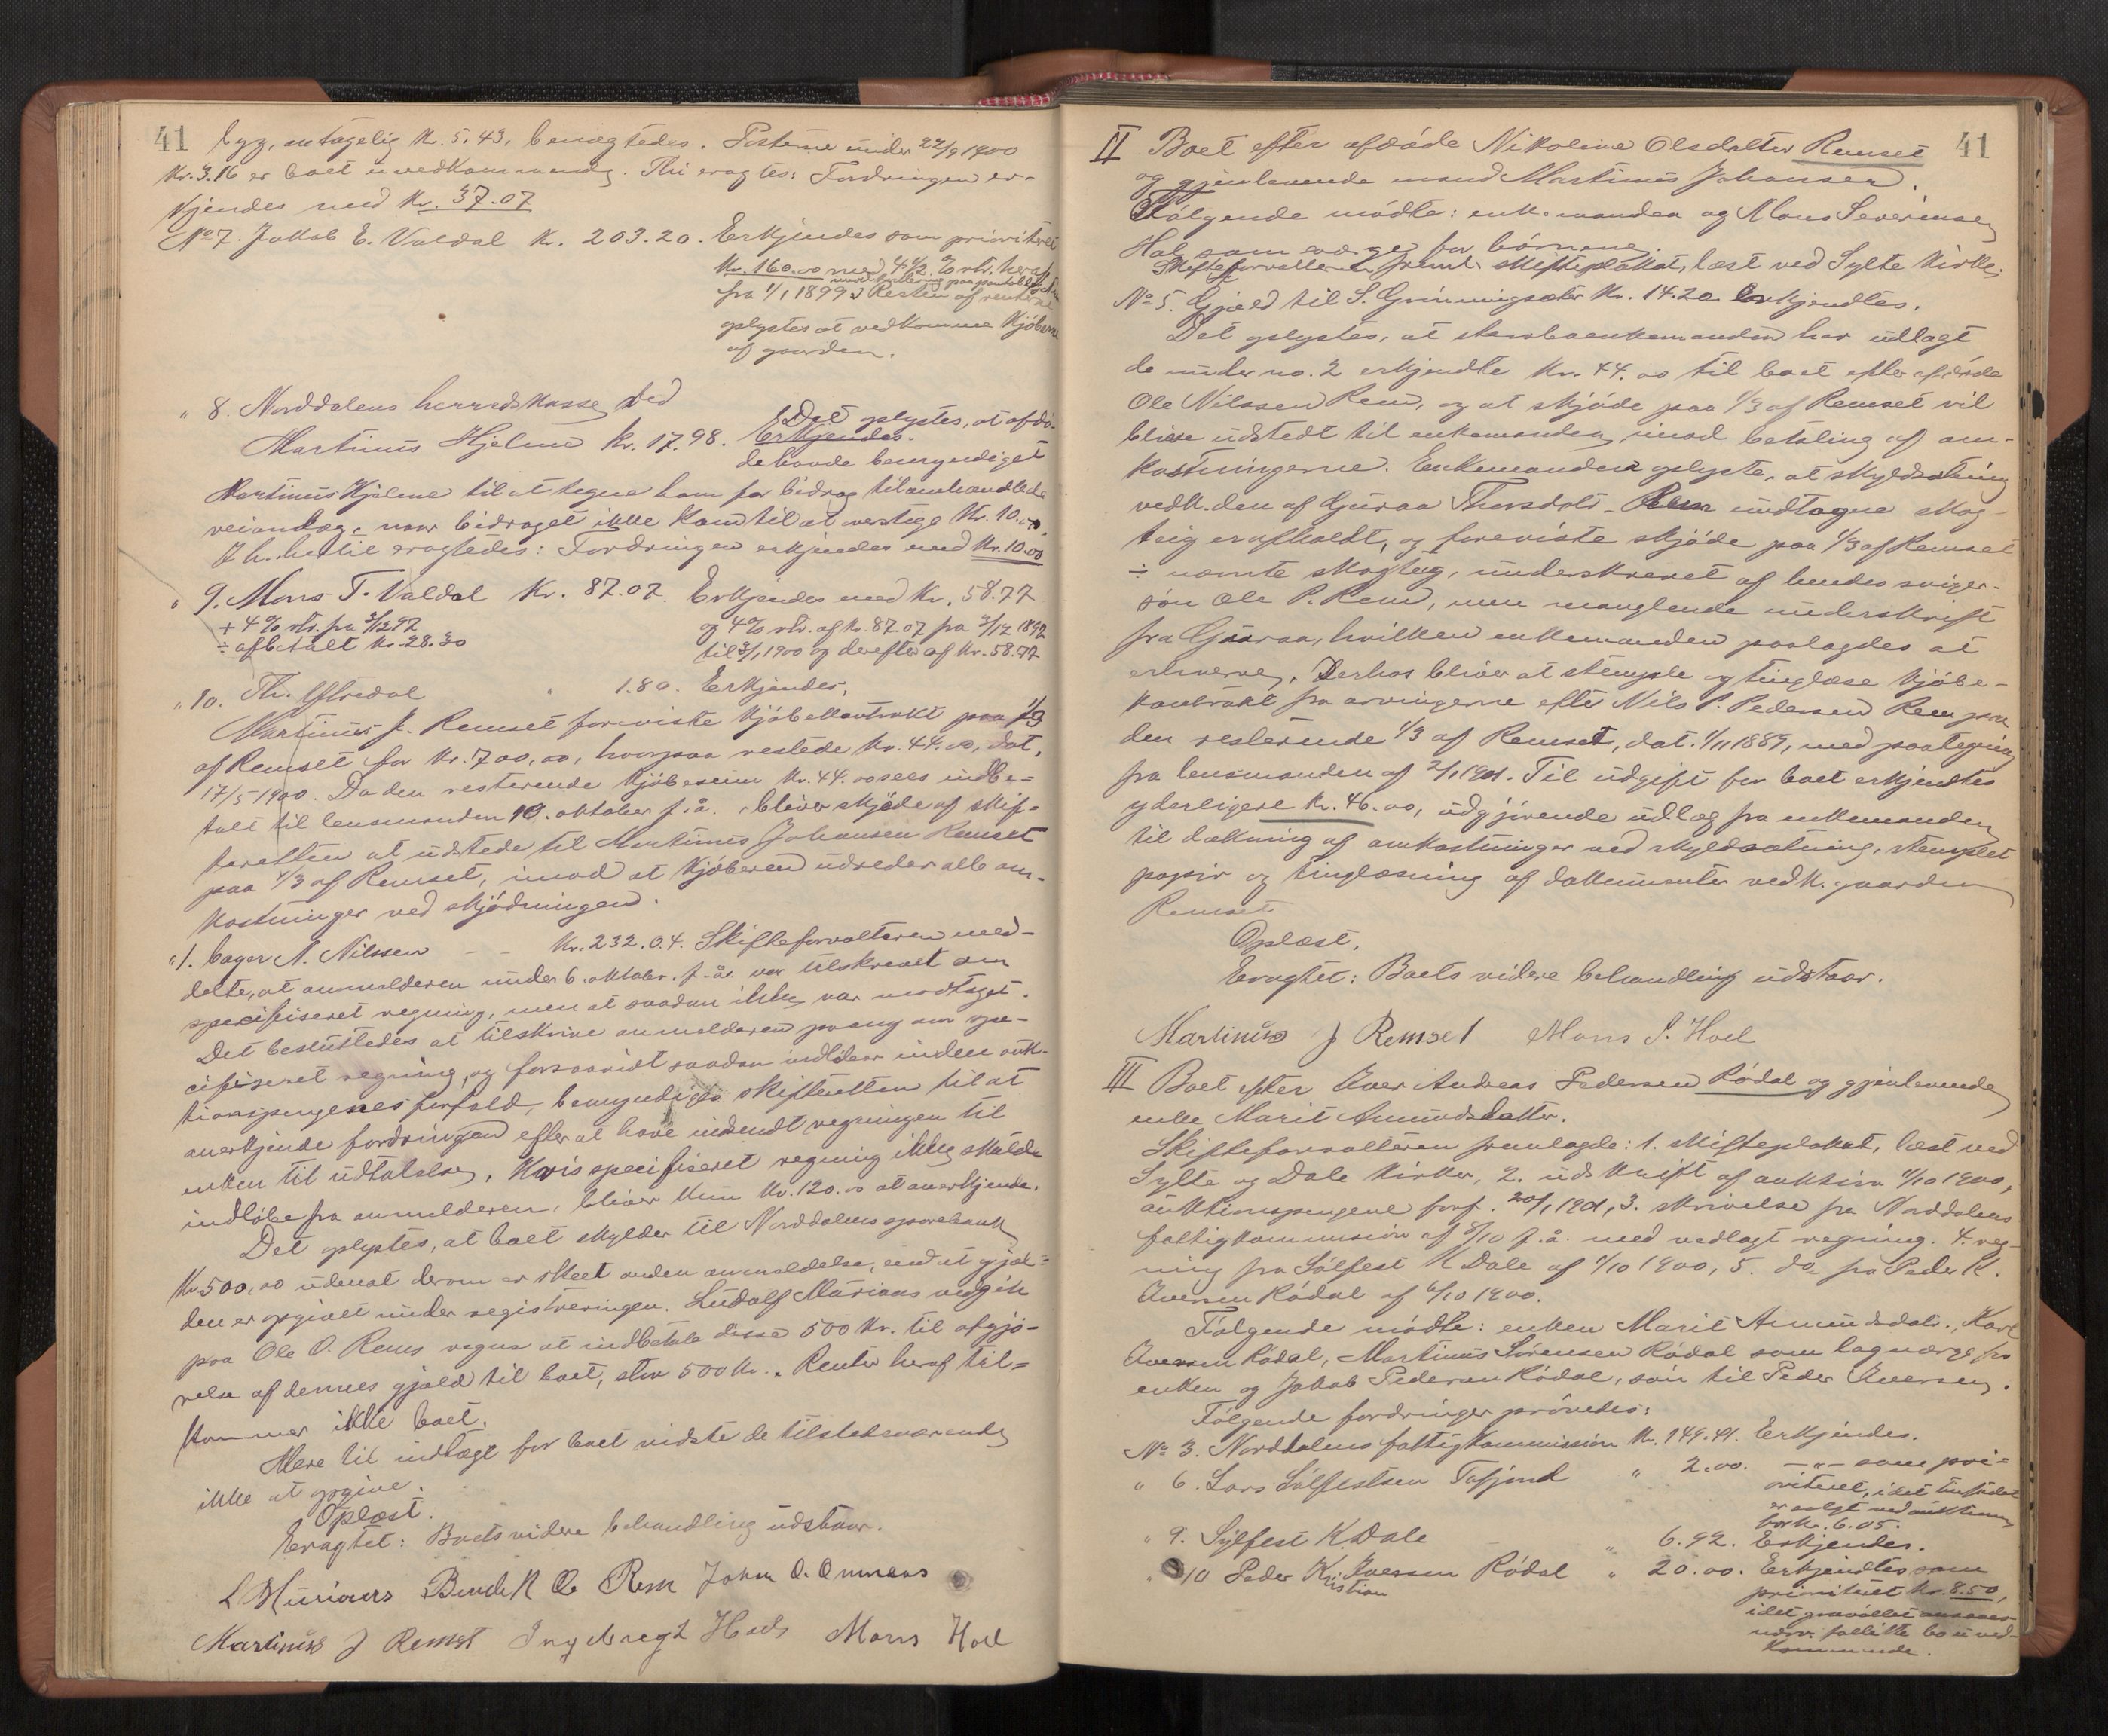 41
byg, antagelig Kr. 5.43, benægtedes. Posterne under 22/9 1900
Kr. 3.16 er boet uvedkommende. Thi eragtes: Fordringen er-
kjendes med Kr. 37.07
No 7. Jakob E. Valdal Kr. 203.20. Erkjendes som prioriteret
Kr. 160.00 med 4 1/2 % rtr. heraf
fra 1/1 1899. Resten af renterne
oplystes at vedkomme Kjøberen
af gaarden.
" 8. Norddalens herredskasse ved
Martinus Hjelme Kr. 17.98. Erkjendes. Det oplystes, at afdø-
de havde bemyndiget
Martinus Hjelme til at tegne ham for bidrag til omhandlede
veianlæg, naar bidraget ikke kom til at overstige Kr. 10.00,
I h. hertil eragtedes: Fordringen erkjendes med Kr. 10.00
" 9. Mons T. Valdal Kr. 87.07. Erkjendes med Kr. 58.77
+ 4 % rtr. fra 3/12 97 og 4% rtr. af Kr. 87.07 fra 3/12 1897
÷ afbetalt Kr. 28.30 til 3/1 1900 og derefter af Kr. 58.77
" 10. Th. Ytredal " 1.80. Erkjendes.
Martinus J. Remset foreviste Kjøbekontrakt paa 1/3
af Remset for Kr. 700,00, hvorpaa restede Kr. 44.00, dat.
17/5 1900. Da den resterende Kjøbesum Kr. 44.00 sees indbe-
talt til lensmanden 10. oktober f. å., bliver skjøde af skif-
teretten at udstede til Martinus Johansen Remset
paa 1/3 af Remset, imod at Kjøberen udreder alle om-
kostninger ved skjødningen.
" 1. bager N. Nilssen — — Kr. 232.04. Skifteforvalteren med-
delte, at anmelderen under 6. oktobr. f. å. var tilskrevet om
specifiseret regning, men at saadan ikke var modtaget.
Det besluttedes at tilskrive anmelderen paany om spe-
cifiseret regning, og forsaavidt saadan indløber inden auk-
tionspengenes forfald, bemyndiges skifteretten til at
anerkjende fordringen efter at have indsendt regningen til
enken til udtalelse. Hvis specifiseret regning ikke skulde
indløbe fra anmelderen, bliver kun Kr. 120.00 at anerkjende.
Det oplystes, at boet skylder til Norddalens sparebank
Kr. 500,00 uden at derom er skeet anden anmeldelse, end at gjæl-
den er opgivet under registreringen. Ludolf Muriaas vedgik
paa Ole O. Rems vegne at indbetale disse 500 Kr. til afgjø-
relse af dennes gjæld til boet, stor 500 Kr. Renter heraf til-
kommer ikke boet.
Mere til indtægt for boet vidste de tilstedeværende
ikke at opgive.
Oplæst.
Eragtet: Boets videre behandling udstaar.
L Muriaas Bendik O. Rem John O. Omenaas
Martinus J Remset Ingebregt Hoels Mons Hoel
41
II Boet efter afdøde Nikoline Olsdatter Remset
og gjenlevende mand Martinus Johansen.
Følgende mødte: enkemanden og Mons Severinsen
Hol som værge for børnene.
Skifteforvalteren fremla. skifteplakat, læst ved Sylte Kirke.
No 5. Gjæld til S. Grønningsæter Kr. 14.20. Erkjendtes.
Det oplystes, at stervboenkemanden har udlagt
de under no. 2 erkjendte Kr. 44.00 til boet efter afdøde
Ole Nilssen Rem, og at skjøde paa 1/3 af Remset vil
blive udstedt til enkemanden imod betaling af om-
kostningerne. Enkemanden oplyste, at skyldsætning
vedk. den af Guraa Thorsdatr. Rem undtagne skog-
teig er afholdt, og foreviste skjøde paa 1/3 af Remset
÷ nævnte skogteig, underskrevet af hendes sviger-
søn Ole P. Rem, men manglende underskrift
fra Guraa, hvilken enkemanden paalagdes at
erhverve. Derhos bliver at stemple og tinglæse Kjøbe-
kontrakt fra arvingerne efter Nils P. Pedersen Rem paa
den resterende 1/3 af Remset, dat. 1/11 1889, med paategning
fra lensmanden af 2/1 1901. Til udgift for boet erkjendtes
yderligere Kr. 46.00, udgjørende udlæg fra enkemanden
til dækning af omkostninger ved skyldsætning, stemplet
papir og tinglæsning af dokumenter vedk. gaarden
Remset
Oplæst.
Eragtet: Boets videre behandling udstaar.
Martinus J Remset Mons S. Hoel
III Boet efter Iver Andreas Pedersen Rødal og gjenlevende
enke Marit Amundsdatter.
Skifteforvalteren fremlagde: 1. skifteplakat, læst ved
Sylte og Dale kirker, 2. udskrift af auktion 4/10 1900,
auktionspengene forf. 20/1 1901, 3. skrivelse fra Norddalens
fattigkommission af 8/10 f. å. med vedlagt regning. 4. reg-
ning fra Sølfest K Dale af 4/10 1900, 5. do fra Peder K.
Iversen Rødal af 4/10 1900.
Følgende mødte: enken Marit Amundsdatr., Karl
Iversen Rødal, Martinus Sørensen Rødal som lagværge for
enken og Jakob Pedersen Rødal, søn til Peder Iversen.
Følgende fordringer prøvedes:
No 3. Norddalens fattigkommission Kr. 149.41. Erkjendes.
" 6. Lars Sølfestsen Tafjord " 2.00. —"— som pri-
oriteret, idet
er solgt ved auktionen
for Kr. 6.05.
" 9. Sylfest K Dale " 6.92. Erkjendes.
" 10 Peder Kristian Iversen Rødal " 20.00. Erkjendtes som
prioriteret Kr. 8.50,
idet gravøllet ansaaes
nærv. fallitbo uved-
kommende.